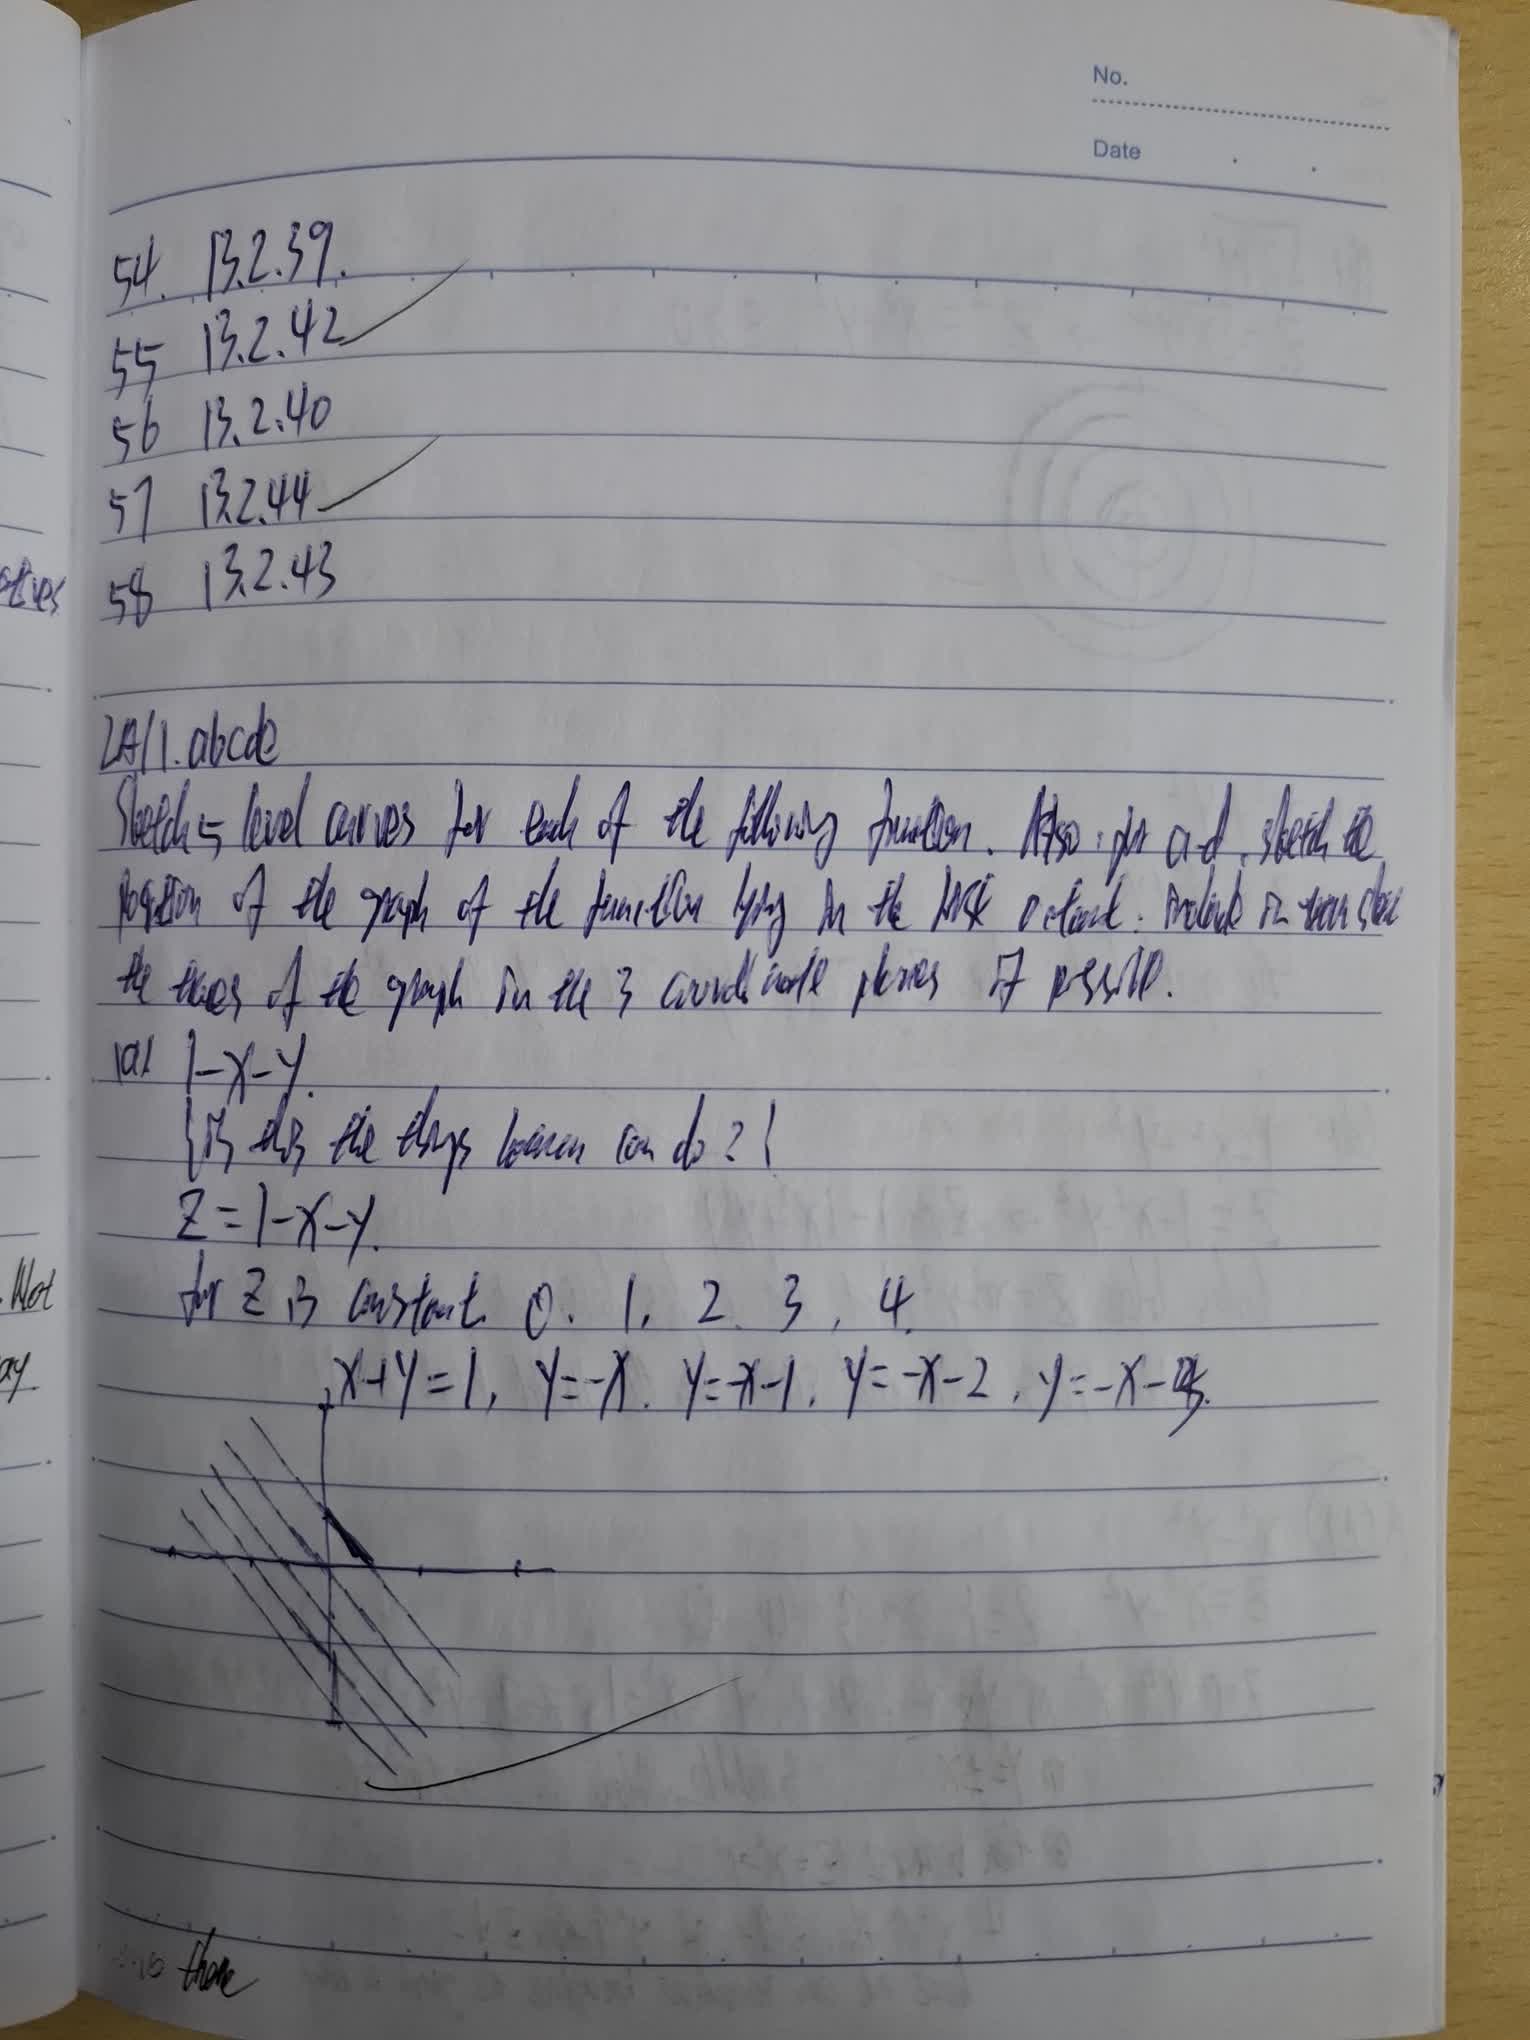 No.
Date
54. 13.2.39.
55 13.2.42
56 13.2.40
57 13.2.44
58 13.2.43
atives
2A/1. abcde
Sketch 5 level curves for each of the following function. Also, for a-d, sketch the
portion of the graph of the function lying in the first octant. include in your sketch
the traces of the graph in the 3 coordinate planes if possible.
(a) 1-x-y.
is this the things human can do?
Z=1-x-y.
for Z is constant 0. 1. 2. 3, 4.
x+y=1, y=-x. y=-x-1. y=-x-2, y=-x-3.
Not
ay
there